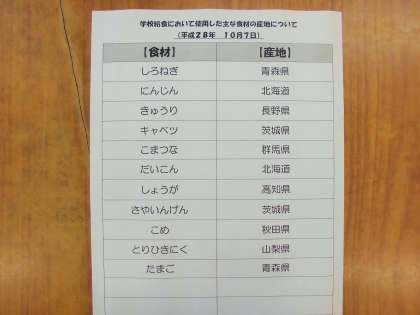 学校給食において使用した主な食材の産地について
(平成28年 10月7日)
【食材】 【産地】
しろねぎ 青森県
にんじん 北海道
きゅうり 長野県
キャベツ 茨城県
こまつな 群馬県
だいこん 北海道
しょうが 高知県
さやいんげん 茨城県
こめ 秋田県
とりひきにく 山梨県
たまご 青森県